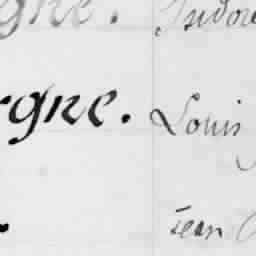 gne. Isidore
rgne. Louis
Jean